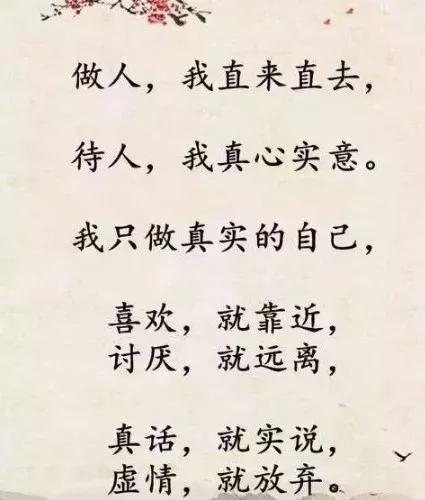 做人，我直来直去，
待人，我真心实意。
我只做真实的自己，
喜欢，就靠近，
讨厌，就远离，
真话，就实说，
虚情，就放弃。